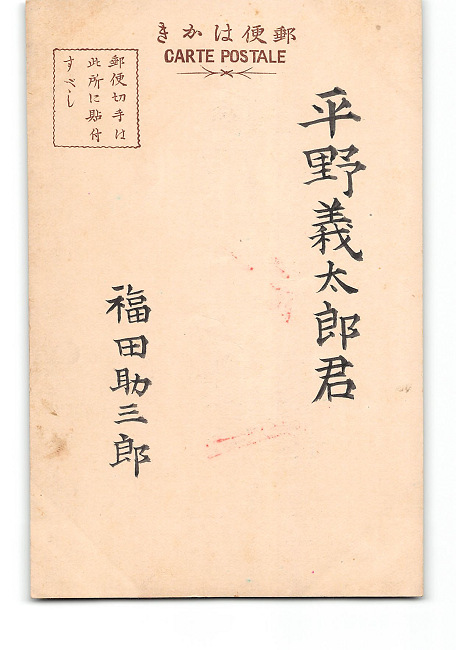 郵便はかき
CARTE POSTALE
郵便切手は
此所に貼付
すべし
平野義太郎君
福田助三郎